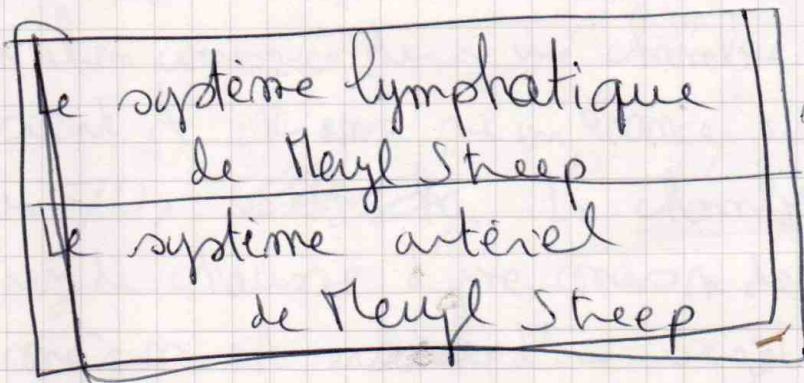 Le système lymphatique
de Meryl Streep
Le système artériel
de Meryl Streep